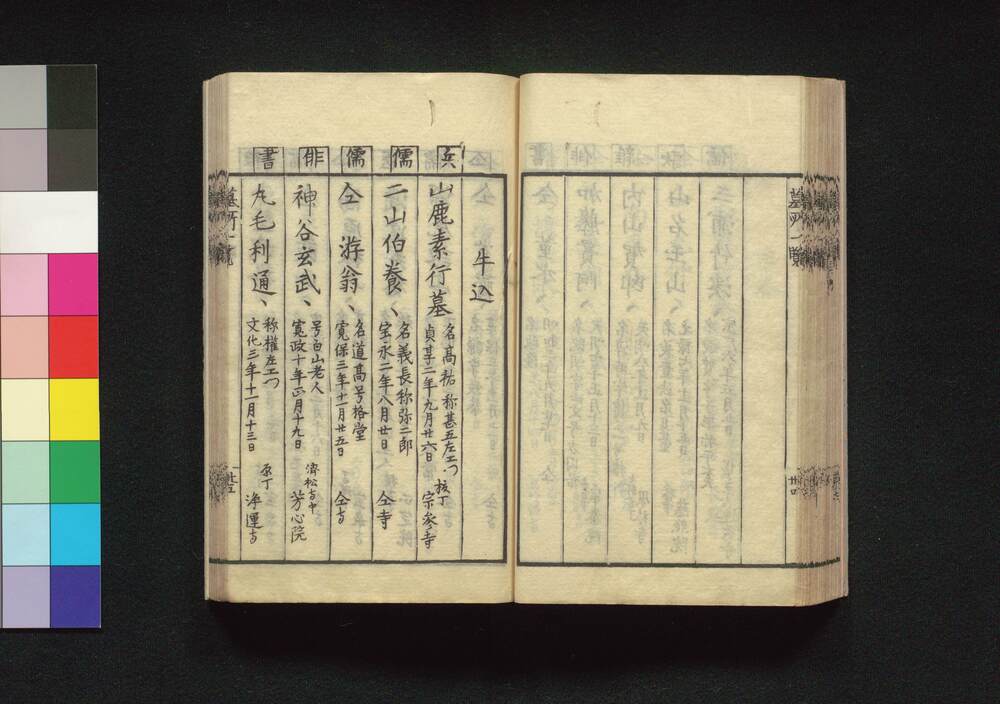 墓所一覧
廿四
牛込
兵
山鹿素行墓
名高祐 称甚五左エ門
貞享二年九月廿六日
榎丁
宗参寺
儒
二山伯養、
名義長称弥二郎
宝永二年八月廿日
仝寺
儒
仝 游翁、
名道高号格堂
寛保三年十一月廿五日
仝寺
俳
神谷玄武、
号白山老人
寛政十年正月十九日
済松寺中
芳心院
書
丸毛利通、
称権左エ門
文化三年十一月十三日
原丁
浄運寺
墓所一覧
廿五